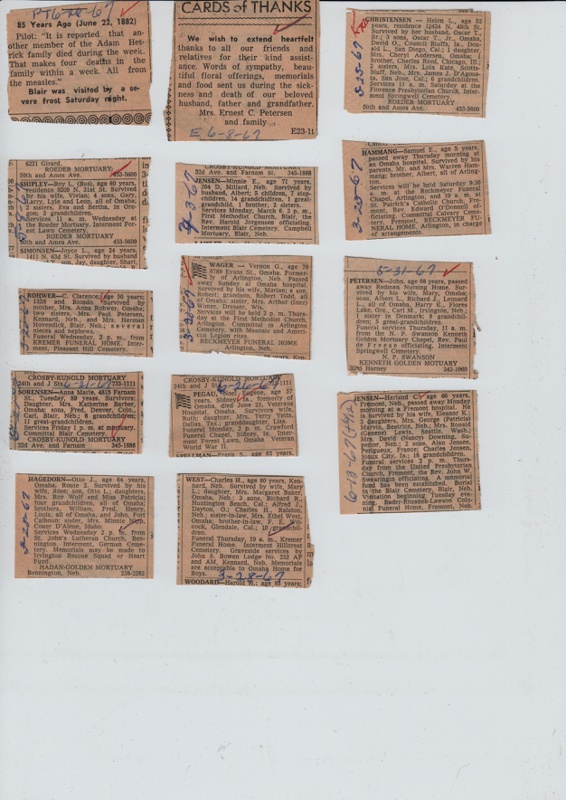 PT 6-28-67
85 Years Ago (June 22, 1882)
Pilot: "It is reported that an-
other member of the Adam Het-
rick family died during the week.
That makes four deaths in the
family within a week. All from
the measles."
Blair was visited by a se-
vere frost Saturday night.
CARDS of THANKS
We wish to extend heartfelt
thanks to all our friends and
relatives for their kind assist-
ance. Words of sympathy, beau-
tiful floral offerings, memorials
and food sent us during the sick-
ness and death of our beloved
husband, father and grandfather.
Mrs. Ernest C. Petersen
and family
E23-11
E 6-8-67
CHRISTENSEN — Helen L., age 52
years, residence 12424 N. 48th St.
Survived by her husband, Oscar T.
Sr.; 3 sons, Oscar T., Jr., Omaha,
David O., Council Bluffs, Ia., Don-
ald L., San Diego, Cal.; daughter,
Mrs. Cheryl Andersen, Omaha;
brother, Charles Reed, Chicago, Ill.;
2 sisters, Mrs. Lois Kate, Scotts-
bluff, Neb., Mrs. James J. D'Agosta,
San Jose, Cal.; 6 grandchildren.
Services 11 a.m. Saturday at the
Florence Presbyterian Church, Inter-
ment Springwell Cemetery.
ROEDER MORTUARY
50th and Ames Ave. 453-5600
6221 Girard.
ROEDER MORTUARY
50th and Ames Ave. 453-5600
SHIPLEY—Roy L. (Bus), age 60 years,
Residence 9209 N. 31st St. Survived
by his wife, Vivian; 4 sons, Gary,
Larry, Lyle and Leon, all of Omaha;
2 sisters, Eva and Bertha, in Ore-
gon; 2 grandchildren.
Services 11 a.m. Wednesday at
the Roeder Mortuary. Interment For-
est Lawn Cemetery.
ROEDER MORTUARY
50th and Ames Ave. 453-5600
SIMONSON—Joyce L., age 24 years,
1411 N. 43d St. Survived by husband
son, Jay, daughter, Shari,
CROSBY-KUNOLD MORTUARY
32d Ave. and Farnam St. 345-1886
JENSEN—Minnie E., age 72 years,
204 D, Millard, Neb. Survived by
husband, Albert; 5 children, 7 step-
children, 14 grandchildren, 1 great-
grandchild, 1 brother, 3 sisters.
Services Monday, March 6, 2 p.m.,
First Methodist Church, Blair, the
Rev. Harold Jorgensen officiating.
Interment Blair Cemetery. Campbell
Mortuary, Blair, Neb.
HAMMANG—Samuel E., age 5 years,
passed away Thursday morning at
an Omaha hospital. Survived by his
parents, Mr. and Mrs. Warren Ham-
mang; brother, Albert, all of Arling-
ton.
Services will be held Saturday 9:30
a.m. at the Reckmeyer Funeral
Chapel, Arlington, and 10 a.m. at
St. Patrick's Catholic Church, Fre-
mont, Edward O'Donnell of-
ficiating. Committal Calvary Ceme-
tery, Fremont. RECKMEYER FU-
NERAL HOME, Arlington, in charge
of arrangements.
3-25-67
WAGER — Vernon G., age 70
6789 Evans St., Omaha. Former-
ly of Arlington, Neb. Passed
away Sunday at Omaha hospital.
Survived by his wife, Marien; a son,
Robert; grandson, Robert Todd, all of
Omaha; sister, Mrs. Arthur (Dora)
Winter, Denver.
Services will be held 2 p.m. Thurs-
day at the First Methodist Church,
Arlington. Committal in Arlington
Cemetery, with Masonic and Ameri-
can Legion rites.
RECKMEYER FUNERAL HOME
Arlington, Neb.
5-31-67
PETERSEN—John, age 88 years, passed
away Redman Nursing Home. Sur-
vived by his wife, Mary; 4 sons,
Albert L., Richard Z., Leonard
L., all of Omaha, Harry K., Flores
Lake, Ore., Carl M., Irvington, Neb.;
1 sister in Denmark; 8 grandchildren;
5 great-grandchildren.
Funeral services Thursday, 11 a.m.
from the N. P. Swanson Kenneth
Golden Mortuary Chapel, Rev. Paul
de Freese officiating. Interment
Springwell Cemetery.
N. P. SWANSON
KENNETH GOLDEN MOTUARY
Harney 342-1060
ROHWER—C. Clarence, age 30 years;
133d and Blondo. Survived by
mother, Mrs. Anna Rohwer, Omaha,
two sisters, Mrs. Paul Petersen,
Kennard, Neb., and Mrs. Herman
Hovendick, Blair, Neb.; several
nieces and nephews.
Funeral Wednesday 2 p.m. from
KREMER FUNERAL HOME. Inter-
ment, Pleasant Hill Cemetery.
CROSBY-KUNOLD MORTUARY
24th and J Sts. 733-1111
SORENSEN—Anna Marie, 4815 Farnam
St., Tuesday, 89 years. Survivors:
Daughter, Mrs. Katherine Barber,
Omaha; sons, Fred, Denver, Colo.,
Carl, Blair, Neb.; 6 grandchildren;
great-grandchildren.
Services Friday 1 p.m. at mortuary.
Committal Blair Cemetery.
CROSBY-KUNOLD MORTUARY
32d Ave. and Farnam 345-1886
CROSBY-KUNOLD MORTUARY
24th and J 1111
6-26-67
PEGAU—Noel Eugene, age 57
years, Sidney, Ia., formerly of
Omaha, died June 21, Veterans
Hospital, Omaha. Survivors, wife,
Ruth; daughter, Mrs. Terry Yeits,
Dallas, Tex.; granddaughter, Lisa.
Funeral Monday, 2 p.m. Crawford
Funeral Chapel, Sidney, Ia. Inter-
ment Forest Lawn, Omaha Veteran
World War II.
SPELLMAN—Frank S., age 83 years,
JENSEN—Harland C., age 66 years,
Fremont, Neb., passed away Monday
morning at a Fremont hospital. He
is survived by his wife, Eleanor K.;
4 daughters, Mrs. George (Patricia)
Marvin, Beatrice, Neb.; Mrs. Ronald
(Gaene) Lewis, Seattle, Wash.;
Mrs. David (Nancy) Downing, Su-
perior, Neb.; 2 sons, Alan Jensen,
Perigueux, France; Charles Jensen,
Sioux City, Ia.; 16 grandchildren.
Funeral services 2 p.m. Thurs-
day from the United Presbyterian
Church, Fremont, the Rev. John W.
Swearingen officiating. A memorial
fund has been established. Burial
in the Blair Cemetery, Blair, Neb.
Visitation beginning Tuesday evening,
Bader-Roustak-Lawson Colo-
nial Funeral Home, Fremont, Neb.
HAGEDORN—Otto J., age 64 years,
of Bennington. Survived by his
wife, Rose; son, Otto L.; daughters,
Mrs. Roy Wulf and Miss Patricia;
four grandchildren, all of Omaha;
brothers, William, Fred, Henry,
Louis, all of Omaha, and John, Fort
Calhoun; sister, Mrs. Minnie Nipp,
Coeur D'Alene, Idaho.
Services Wednesday 2 p.m. from
St. John's Lutheran Church, Ben-
nington. Interment, German Ceme-
tery. Memorials may be made to
Irvington Rescue Squad or Heart
Fund.
HADAN-GOLDEN MORTUARY
Bennington, Neb. 238-2282
WEST—Charles H., age 80 years, Ken-
nard, Neb. Survived by wife, Mary
L.; daughter, Mrs. Margaret Baker,
Omaha, Neb.; 3 sons, Richard R.,
Huntington Beach, Cal.; Alfred J.,
Dayton, O.; Charles H., Ralston,
Neb.; sister-in-law, Mrs. Ethel West,
Omaha; brother-in-law, F. E. Wil-
cock, Glendale, Cal.; 10 grandchil-
dren.
Funeral Thursday, 10 a.m. Kremer
Funeral Home. Interment Hillcrest
Cemetery. Graveside services by
John S. Bowen Lodge No. 232 AF
and AM, Kennard, Neb. Memorials
are acceptable to Omaha Home for
Boys.
3-28-67
WOODARD—Harold H.; age 63 years;